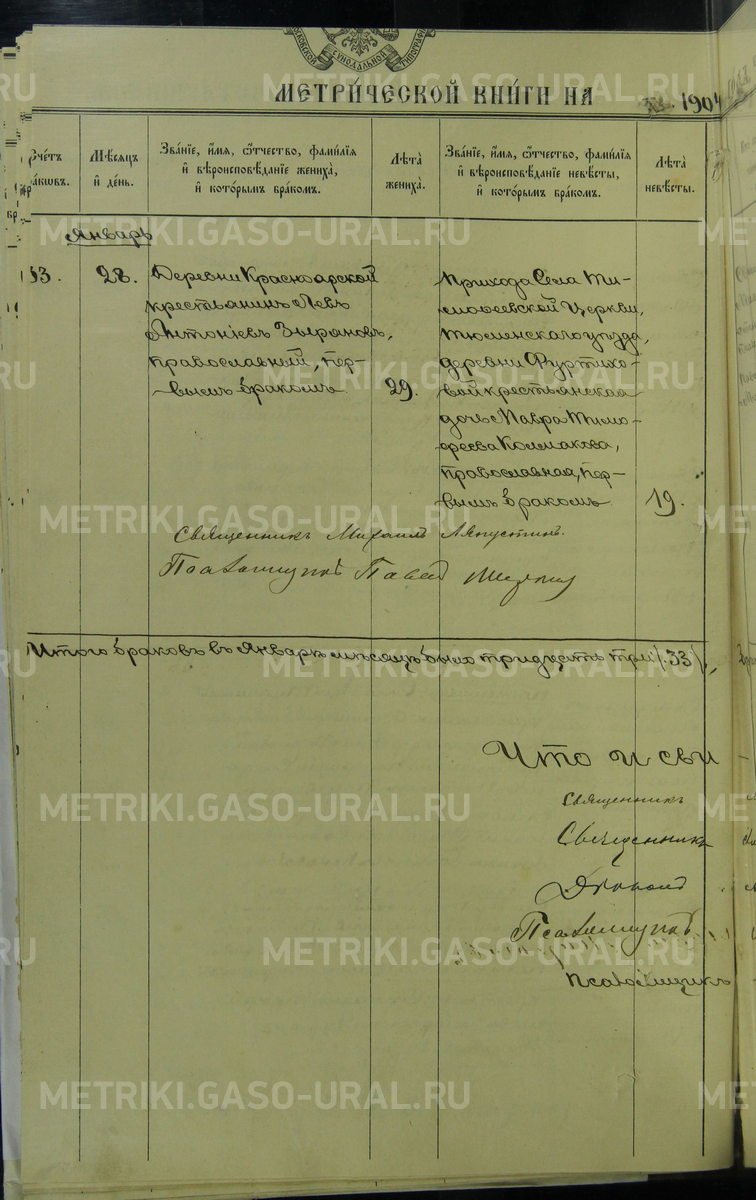 МОСКОВСКОЙ СУНОДАЛЬНОЙ ТИПОГРАФІИ
МЕТРИ́ЧЕСКОЙ КНИ́ГИ НА 1904
Сче́тъ бра́ковъ.
Мѣ́сяцъ и҆ де́нь.
Зва́нїе, и҆́мя, ѻ҆́тчество, фами́лїя и҆ вѣроисповѣ́данїе жениха̀, и҆ кото́рымъ бра́комъ.
Лѣ́та жениха̀.
Зва́нїе, и҆́мя, ѻ҆́тчество, фами́лїя и҆ вѣроисповѣ́данїе невѣ́сты, и҆ кото́рымъ бра́комъ.
Лѣ́та невѣ́сты.
Январь
33.
28.
Деревни Красноярской
крестьянинъ Левъ
Антоніевъ Зыряновъ,
православный, пер-
вымъ бракомъ
29.
Прихода Села Ти-
мофеевской Церкви,
Тюменскаго уѣзда,
деревни Фуртихо-
вой крестьянская
дочь Мавра Тимо-
феева Колмакова,
православная, пер-
вымъ бракомъ
19.
Священникъ Михаилъ Ляпустинъ.
Псаломщикъ Павел
Итого браковъ въ Январѣ мѣсяцѣ было тридцать три /.33/.,
Что и сви
Священникъ
Священникъ
Дьякон
Псаломщикъ
Псаломщикъ
METRIKI.GASO-URAL.RU